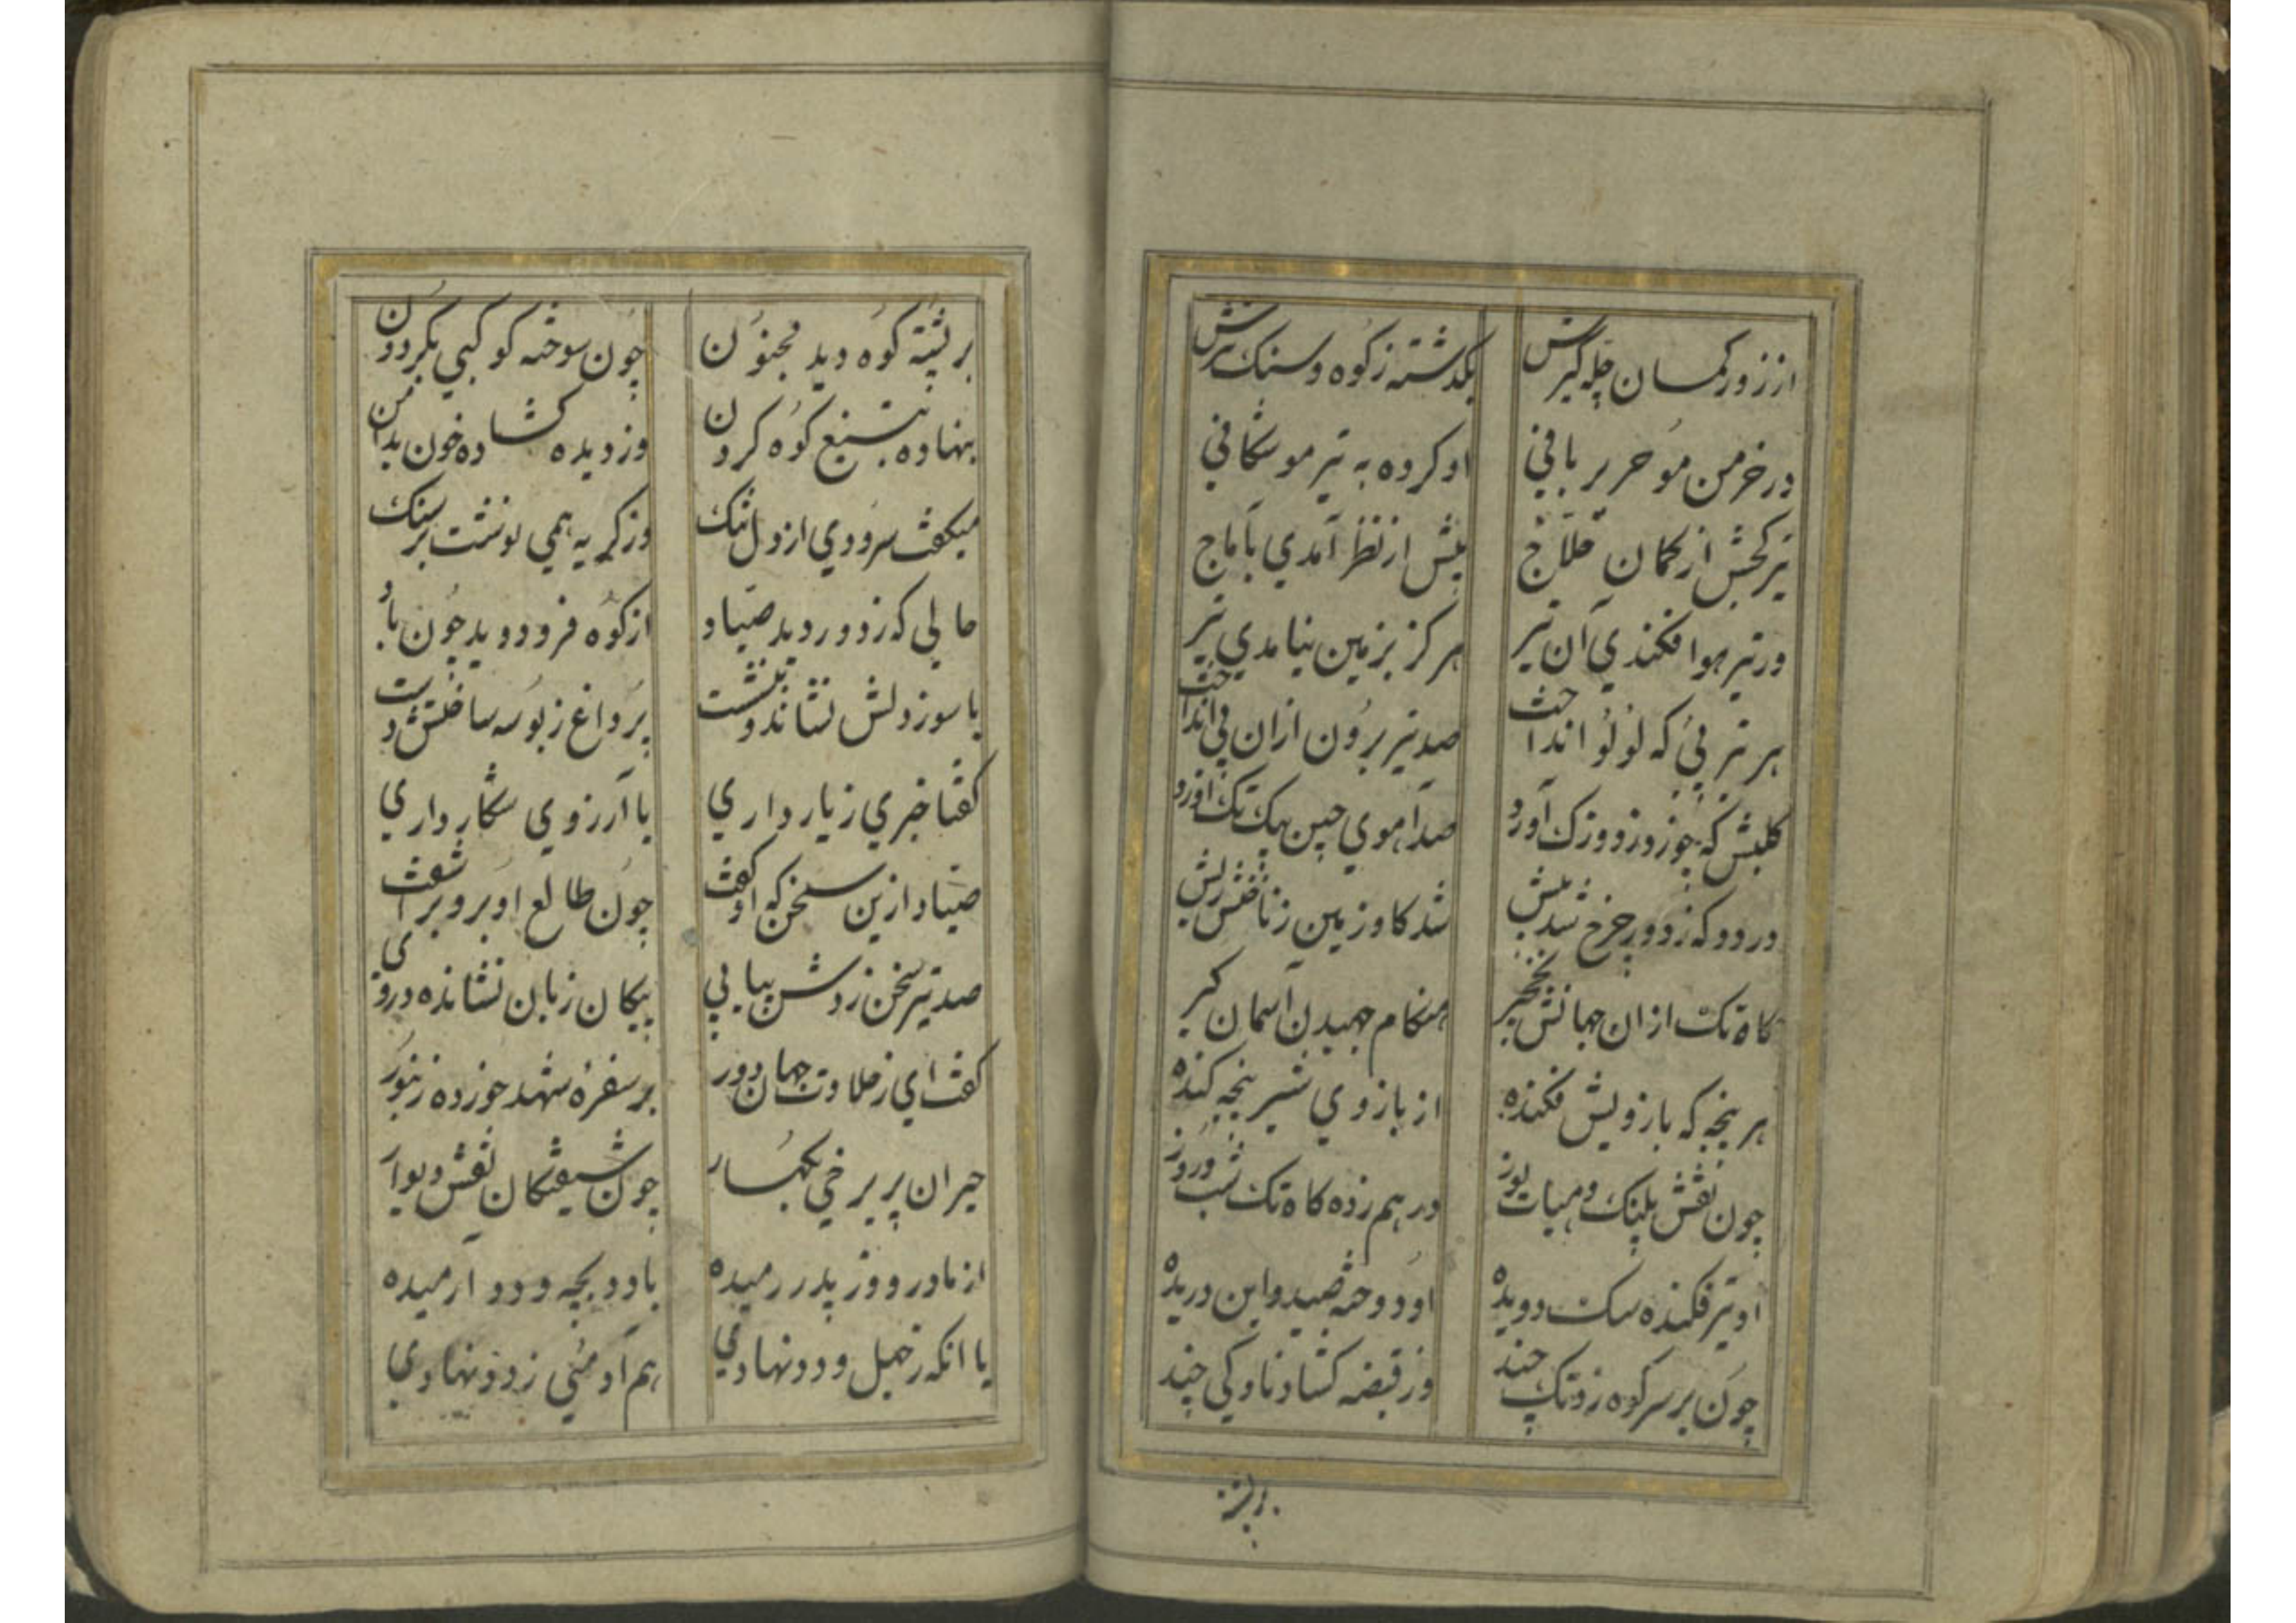 از زور کمان چله گیرش بگذشته ز کوه و سنگ تیرش
در خرمن مو حریر بافی او کرده به تیر مو شکافی
تیر کجش از کمان حلاج پیش از نظر آمدی باماج
ور تیر هوا فکندی آن تیر هرگز بزمین نیامدی تیر
هر تیر پی که لولو انداخت صد تیر برون ازان پی انداخت
کلبش که چو زور و زوزک آورد صد آهوی چین بیک تک آورد
در دو که ز دور چرخ شد بیش شد گاو زمین ز ناخنش ریش
گاه تک ازان جهانش نخچیر هنگام جهیدن آسمان گیر
هر پنجه که بازویش فکنده از بازوی شیر پنجه کنده
چون نقش پلنگ و هیات یوز در هم زده گاه تک شب و روز
او تیر فکنده سک دویده او دوخته صید و این دریده
چون بر سر کوه زد تک چند وز قبضه کشاد ناوکی چند
بر پشته
بر پشته کوه دید مجنون چون سوخته کوکبی بگردون
بنهاده بتیغ کوه گردن وز دیده کشاده خون بدامن
میگفت سرودی از دل تنگ وز گریه همی نوشت بر سنگ
حالی که ز دور دید صیاد از کوه فرو دوید چون باد
با سوز دلش نشاند و بنشست پر داغ ز بوسه ساختش دست
گفتا خبری ز یار داری یا آرزوی شکار داری
صیاد ازین سخن که او گفت چون طالع او برو برآشفت
صد تیر سخن زدش پیاپی پیکان زبان نشانده در وی
گفت ای ز حلاوت جهان دور بر سفره شهد خورده زنبور
حیران پریرخی بکهسار چون شیفتگان نقش دیوار
از مادر و وز پدر رمیده با دد بچه و دد آرمیده
یا انکه ز خیل دد نهادی هم آدمئی ز دد نهادی